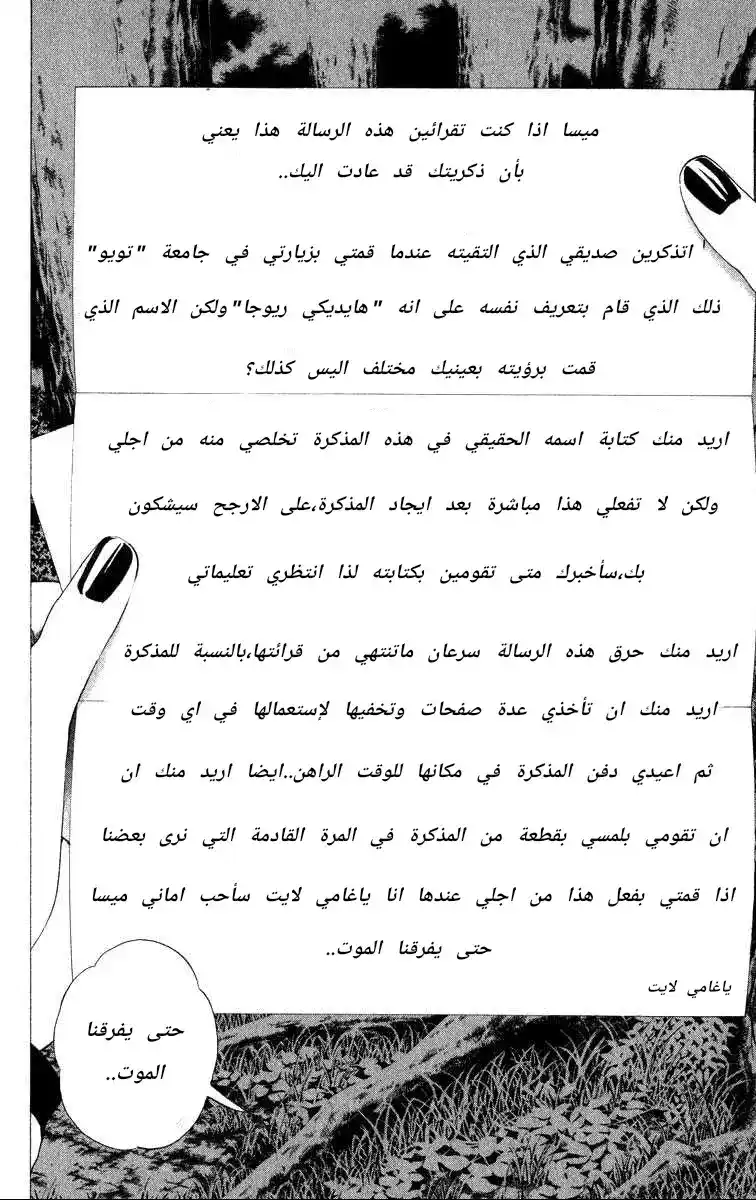 ميسا اذا كنت تقرائين هذه الرسالة هذا يعني
بأن ذكريتك قد عادت اليك..
اتذكرين صديقي الذي التقيته عندما قمتي بزيارتي في جامعة "تويو"
ذلك الذي قام بتعريف نفسه على انه "هايديكي ريوجا"ولكن الاسم الذي
قمت برؤيته بعينيك مختلف اليس كذلك؟
اريد منك كتابة اسمه الحقيقي في هذه المذكرة تخلصي منه من اجلي
ولكن لا تفعلي هذا مباشرة بعد ايجاد المذكرة،على الارجح سيشكون
بك،سأخبرك متى تقومين بكتابته لذا انتظري تعليماتي
اريد منك حرق هذه الرسالة سرعان ماتنتهي من قرائتها،بالنسبة للمذكرة
اريد منك ان تأخذي عدة صفحات وتخفيها لإستعمالها في اي وقت
ثم اعيدي دفن المذكرة في مكانها للوقت الراهن..ايضا اريد منك ان
ان تقومي بلمسي بقطعة من المذكرة في المرة القادمة التي نرى بعضنا
اذا قمتي بفعل هذا من اجلي عندها انا ياغامي لايت سأحب اماني ميسا
حتى يفرقنا الموت..
ياغامي لايت
حتى يفرقنا
الموت..